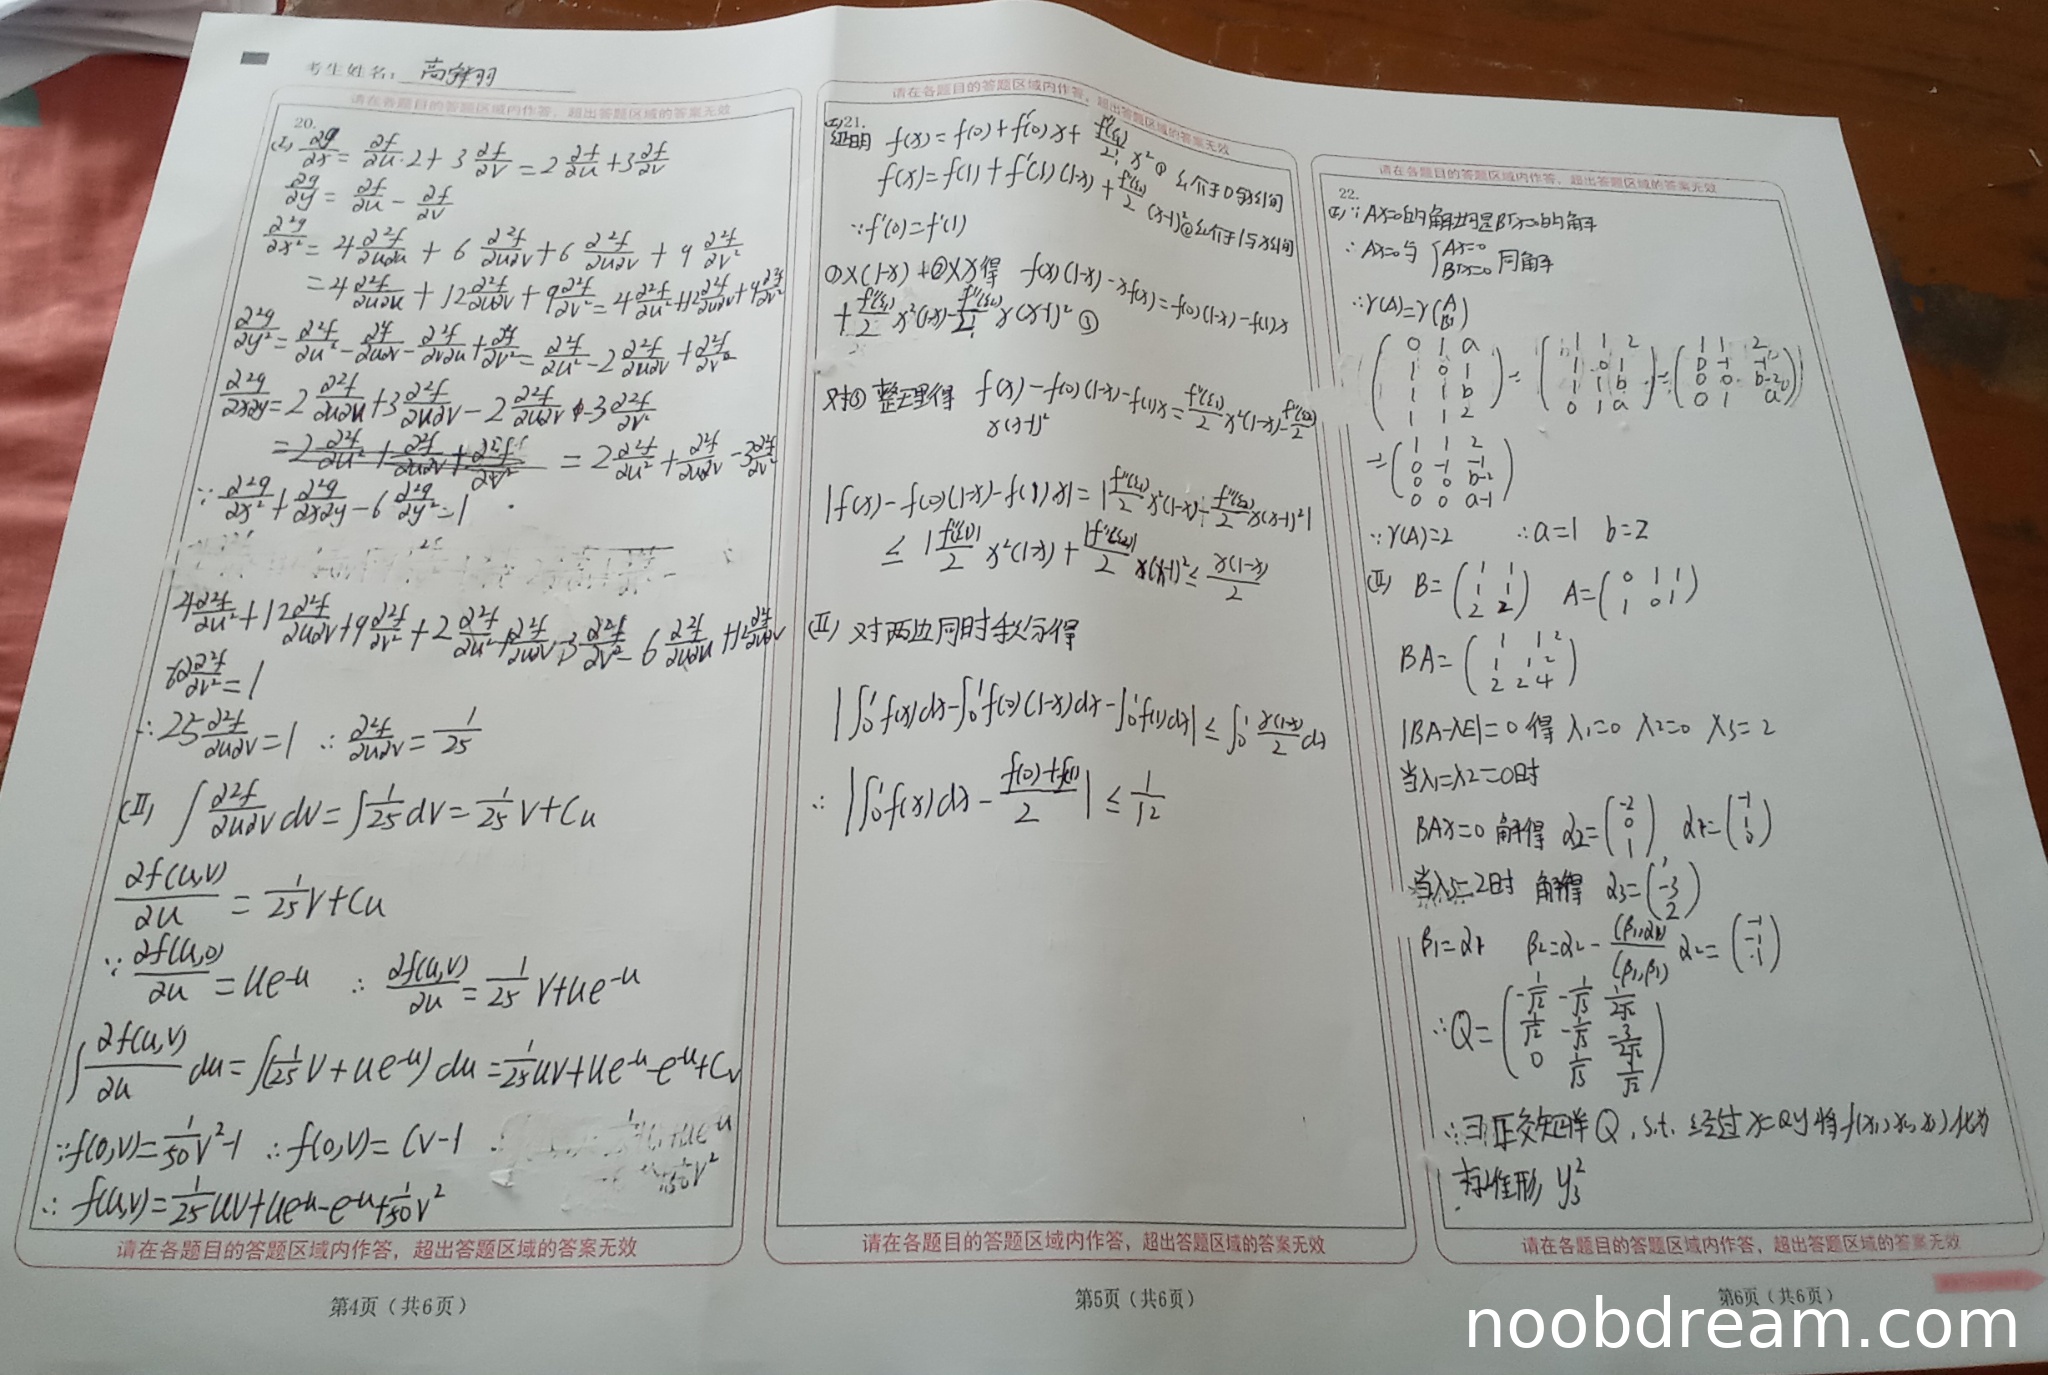 考生姓名:
请在各题目的答题区域内作答,超出答题区域的答案无效
20.
(I) ∂g/∂x = ∂f/∂u·2 + 3 ∂f/∂v = 2 ∂f/∂u + 3 ∂f/∂v
∂g/∂y = ∂f/∂u - ∂f/∂v
∂²g/∂x² = 4 ∂²f/∂u∂u + 6 ∂²f/∂u∂v + 6 ∂²f/∂u∂v + 9 ∂²f/∂v²
= 4 ∂²f/∂u∂u + 12 ∂²f/∂u∂v + 9 ∂²f/∂v² = 4 ∂²f/∂u² + 12 ∂²f/∂u∂v + 9 ∂²f/∂v²
∂²g/∂y² = ∂²f/∂u² - ∂²f/∂u∂v - ∂²f/∂v∂u + ∂²f/∂v² = ∂²f/∂u² - 2 ∂²f/∂u∂v + ∂²f/∂v²
∂²g/∂x∂y = 2 ∂²f/∂u∂u + 3 ∂²f/∂u∂v - 2 ∂²f/∂u∂v - 3 ∂²f/∂v²
= 2 ∂²f/∂u² + ∂²f/∂u∂v - 3 ∂²f/∂v²
∵ ∂²g/∂x² + ∂²g/∂x∂y - 6 ∂²g/∂y² = 1
4 ∂²f/∂u² + 12 ∂²f/∂u∂v + 9 ∂²f/∂v² + 2 ∂²f/∂u² + ∂²f/∂u∂v - 3 ∂²f/∂v² - 6 ∂²f/∂u∂u + 12 ∂²f/∂u∂v
∂²f/∂v² = 1
∴ 25 ∂²f/∂u∂v = 1 ∴ ∂²f/∂u∂v = 1/25
(II) ∫ ∂²f/∂u∂v dv = ∫ 1/25 dv = 1/25 v + Cu
∂f(u,v)/∂u = 1/25 v + Cu
∵ ∂f(u,0)/∂u = ue^-u ∴ ∂f(u,v)/∂u = 1/25 v + ue^-u
∫ ∂f(u,v)/∂u du = ∫(1/25 v + ue^-u) du = 1/25 uv + ue^-u - e^-u + Cv
∵ f(0,v) = 1/50 v² - 1 ∴ f(0,v) = Cv - 1
∴ f(u,v) = 1/25 uv + ue^-u - e^-u + 1/50 v²
请在各题目的答题区域内作答,超出答题区域的答案无效
第4页(共6页)
请在各题目的答题区域内作答,超出答题区域的答案无效
(I) 21.
证明 f(x) = f(0) + f'(0)x + f''(ξ1)/2! x² ① ξ1介于0与x间
f(x) = f(1) + f'(1)(1-x) + f''(ξ2)/2 (x-1)² ② ξ2介于1与x间
∵ f'(0) = f'(1)
①×(1-x) + ②×x得 f(x)(1-x) - xf(x) = f(0)(1-x) - f(1)x
+ f''(ξ1)/2 x²(1-x) - f''(ξ2)/2! x(x-1)² ③
对③ 整理得 f(x) - f(0)(1-x) - f(1)x = f''(ξ1)/2 x²(1-x) - f''(ξ2)/2
x(x-1)²
|f(x) - f(0)(1-x) - f(1)x| = |f''(ξ1)/2 x²(1-x) + f''(ξ2)/2 x(x-1)²|
≤ |f''(ξ1)|/2 x²(1-x) + |f''(ξ2)|/2 x(x-1)² ≤ x(1-x)/2
(II) 对两边同时积分得
|∫₀¹ f(x)dx - ∫₀¹ f(0)(1-x)dx - ∫₀¹ f(1)dx| ≤ ∫₀¹ x(1-x)/2 dx
∴ |∫₀¹ f(x)dx - (f(0)+f(1))/2| ≤ 1/12
请在各题目的答题区域内作答,超出答题区域的答案无效
第5页(共6页)
请在各题目的答题区域内作答,超出答题区域的答案无效
22.
(I) ∵ Ax=0的解均是BTx=0的解
∴ Ax=0与 { Ax=0 BTx=0 同解
∴ r(A) = r(A BT)
(0 1 a; 1 0 1; 1 1 b; 1 1 2) → (1 1 2; 1 0 1; 1 1 b; 0 1 a) → (1 1 2; 0 -1 -1; 0 0 b-2; 0 1 a)
→ (1 1 2; 0 -1 -1; 0 0 b-2; 0 0 a-1)
∵ r(A)=2 ∴ a=1 b=2
(II) B = (1 1; 1 1; 2 2) A = (0 1 1; 1 0 1)
BA = (1 1 2; 1 1 2; 2 2 4)
|BA-λE|=0 得 λ1=0 λ2=0 λ3=2
当λ1=λ2=0时
BAx=0 解得 α2=(-2 0 1) α1=(-1 1 0)
当λ3=2时 解得 α3=(1 -3 2)
β1=α1 β2=α2 - (β1,α2)/(β1,β1) α2 = (-1 -1 -1)
∴ Q = (-1/√2 -1/√3 1/2√2; 1/√2 -1/√3 -3/2√2; 0 1/√3 1/√2)
∴ ∃正交矩阵Q, s.t. 经过x=Qy将f(x1,x2,x3)化为
标准形 y₃²
请在各题目的答题区域内作答,超出答题区域的答案无效
第6页(共6页)
noobdream.com